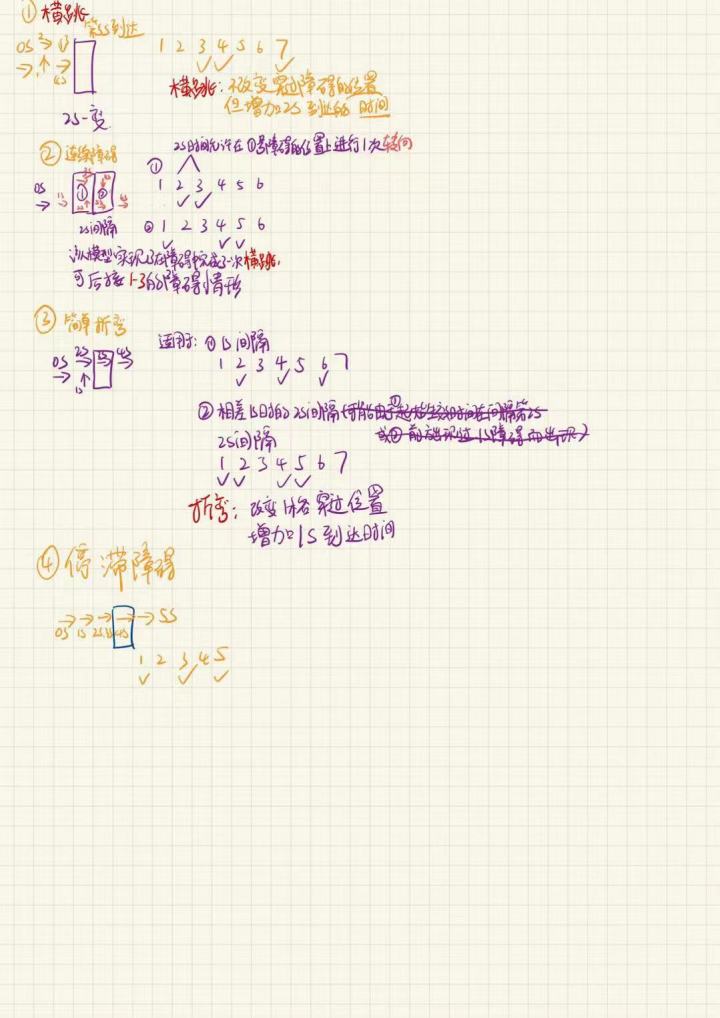 ① 横跳
第5S到达
0S 2 3
1 4S
1 2 3 4 5 6 7
横跳：不改变穿过障碍的位置
但增加2S到达的时间
2S一变
② 连续障碍
2S时间允许在①号障碍的位置上进行1次转向
0S ① ②
① 1 2 3 4 5 6
2S间隔
② 1 2 3 4 5 6
该模型实现了在障碍中完成了一次横跳，
可后接1-3的障碍情形
③ 简单折弯
适用于：① 1S间隔
0S 2S 3S 4S
1S
1 2 3 4 5 6 7
② 相差1S时的2S间隔
2S间隔
1 2 3 4 5 6 7
折弯：改变1格穿过位置
增加1S到达时间
④ 停滞障碍
5S
0S 1S 2S 3S 4S
1 2 3 4 5